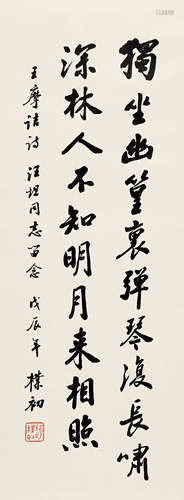 獨坐幽篁裏弹琴復長嘯
深林人不知明月来相照
王摩诘诗 汪坦同志留念 戊辰年 樸初